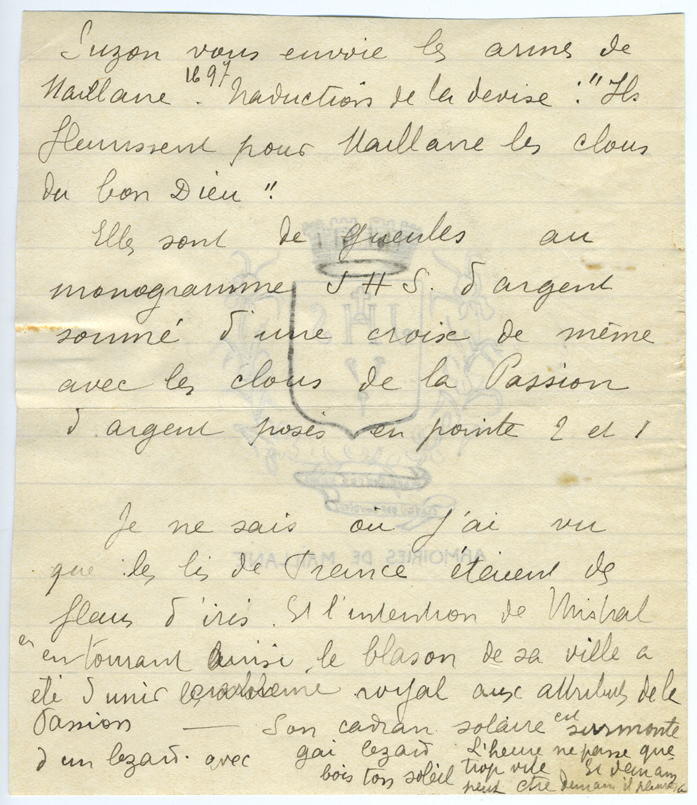 Suzon vous envoie les armes de
Maillane 1697. Traduction de la devise : "Ils
fleurissent pour Maillane les clous
du bon Dieu".
Elles sont de gueules au
monogramme J H S. d'argent
sommé d'une croix de même
avec les clous de la Passion
d'argent posés en pointe 2 et 1
Je ne sais où j'ai vu
que les lis de France étaient des
fleurs d'iris. Et l'intention de Mistral
en entourant ainsi le blason de sa ville a
été d'unir royal aux attributs de la
Passion — Son cadran solaire est surmonté
d'un lezard. avec gai lezard L'heure ne passe que
bois ton soleil trop vite Et demain
peut être demain il pleuvra
ARMOIRIES DE MAILLANE